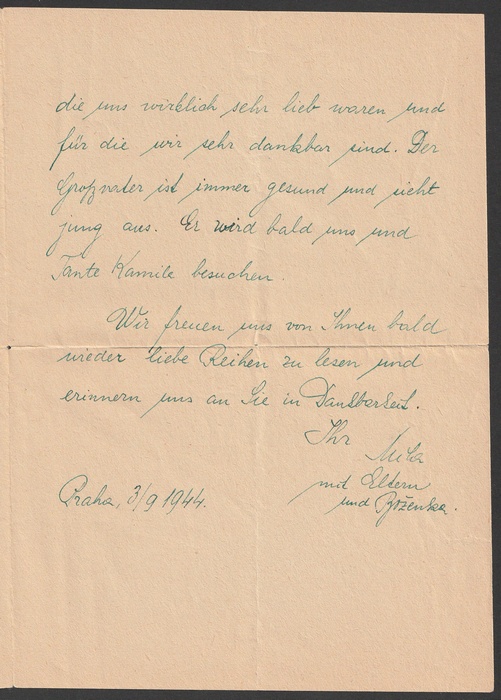 die uns wirklich sehr lieb waren und
für die wir sehr dankbar sind. Der
Großvater ist immer gesund und sieht
jung aus. Er wird bald uns und
Tante Kamile besuchen.
Wir freuen uns von Ihnen bald
wieder liebe Reihen zu lesen und
erinnern uns an Sie in Dankbarkeit.
Ihr
mit Eltern
und Boženka.
Praha, 3/9 1944.